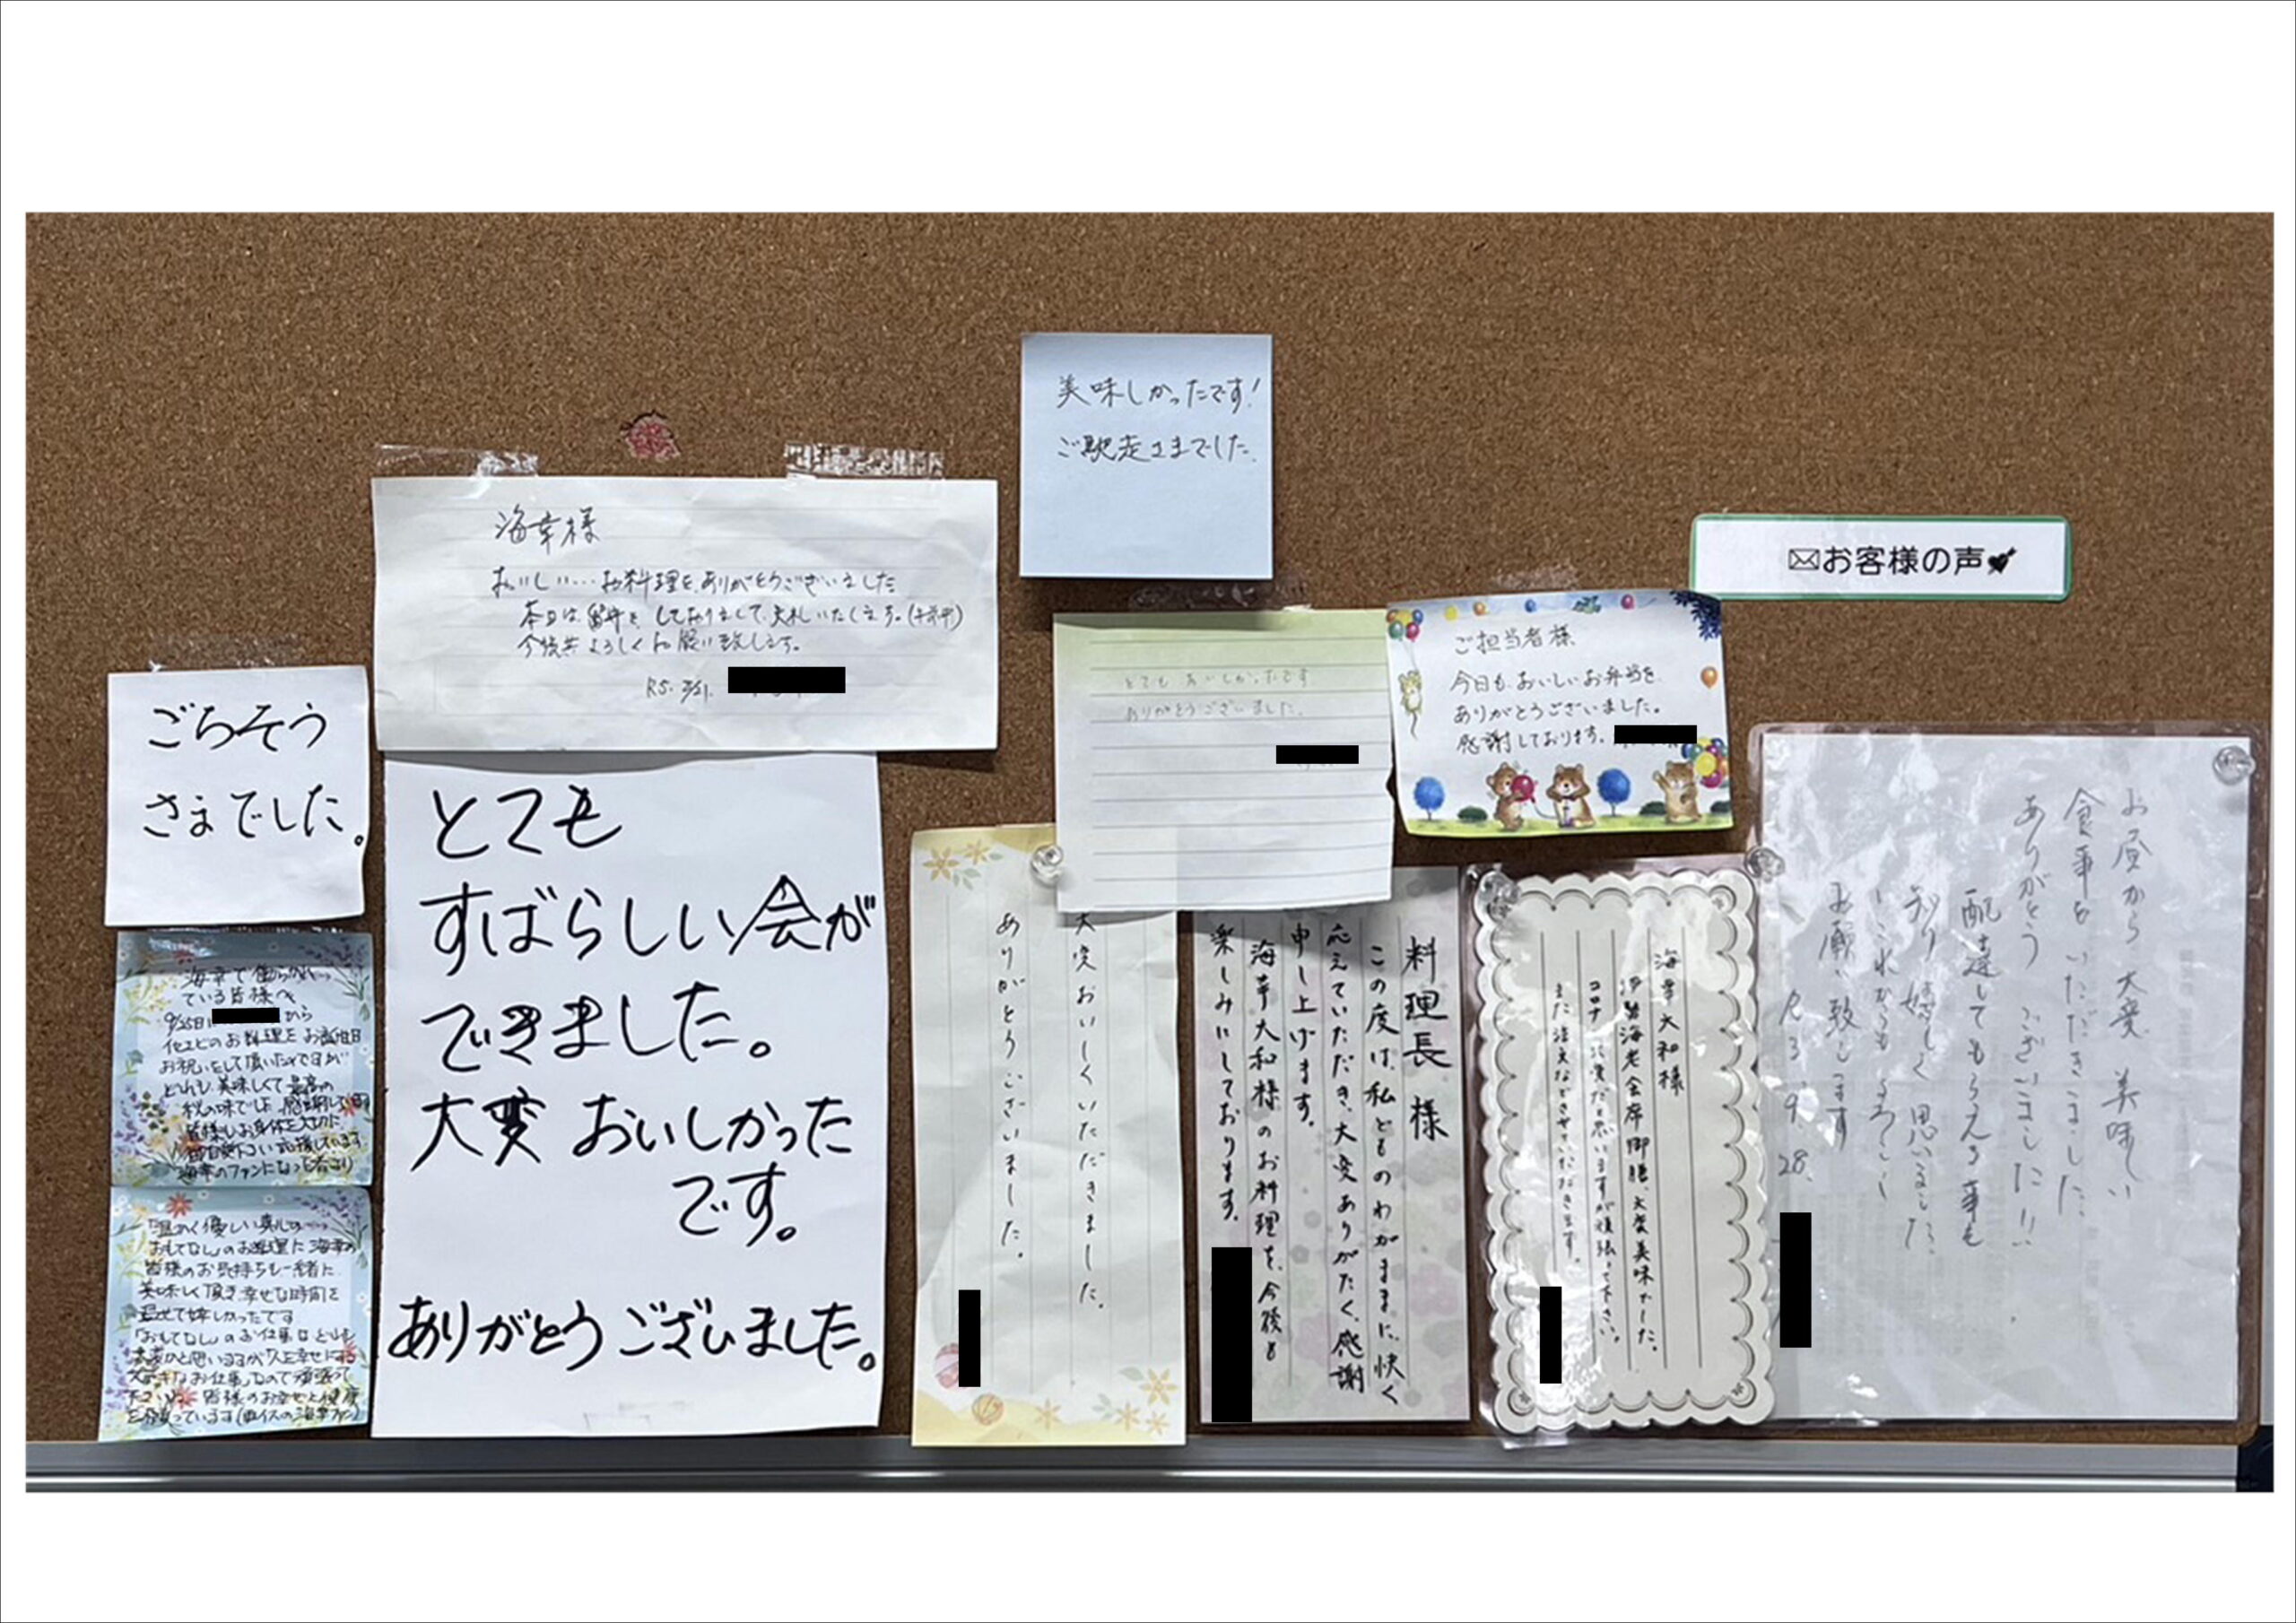 美味しかったです!
ご馳走さまでした.
✉お客様の声💘
海幸様
おいしい…お料理を、ありがとうございました
本日は、留守を、しておりまして、失礼いたします。(午前中)
今後共よろしくお願い致します。
R5.
ごちそう
さまでした。
とても
すばらしい会が
できました。
大変 おいしかった
です。
ありがとうございました。
海幸で働らかれ
ている皆様へ
9/25日に
お料理をお誕生日
お祝いをして頂いたのですが
どれも、美味しくて最高の
秋の味でした
海幸のファンになった
「温かく優しい真心の
おもてなし」のお料理に海幸の
皆様のお気持ちも一緒に
美味しく頂き幸せな時間を
過せて嬉しかったです
「おもてなし」のお仕事はとても
大変かと思いますが
お仕事なので頑張って
下さいね 皆様のお幸せと健康
を祈っています
とても おいしかったです
ありがとうございました。
ご担当者様
今日も、おいしいお弁当を、
ありがとうございました。
感謝しております。
大変おいしくいただきました。
ありがとうございました。
料理長 様
この度は、私どものわがままに、快く
応えていただき、大変ありがたく、感謝
申し上げます。
海幸大和様のお料理を、今後も
楽しみにしております。
海幸大和様
伊勢海老会席御膳、大変美味でした。
コロナで大変だと思いますが頑張って下さい。
また注文などさせていただきます。
お昼から大変 美味しい
食事を いただきました。
ありがとう ございました!!
配達してもらえる事も
知り 嬉しく 思いました。
これからも よろしく
お願い致します
R3.9.28.